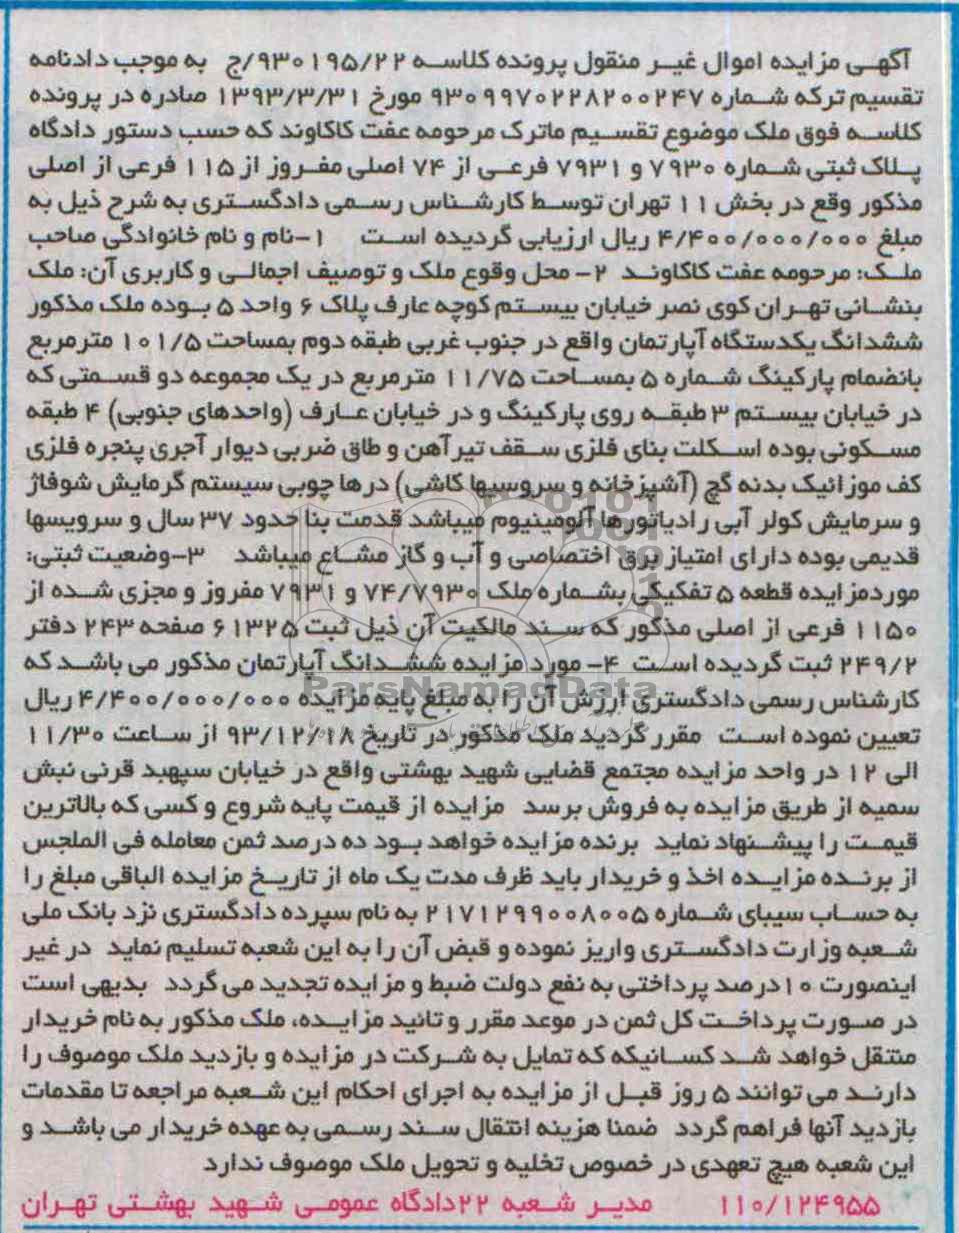 آگهی مزایده اموال غیر منقول پرونده کلاسه ۹۳۰۱۹۵/۲۲/ج به موجب دادنامه
تقسیم ترکه شماره ۹۳۰۹۹۷۰۲۲۸۲۰۰۲۴۷ مورخ ۱۳۹۳/۳/۳۱ صادره در پرونده
کلاسه فوق ملک موضوع تقسیم ماترک مرحومه عفت کاکاوند که حسب دستور دادگاه
پلاک ثبتی شماره ۷۹۳۰ و ۷۹۳۱ فرعی از ۷۴ اصلی مفروز از ۱۱۵ فرعی از اصلی
مذکور وقع در بخش ۱۱ تهران توسط کارشناس رسمی دادگستری به شرح ذیل به
مبلغ ۴/۴۰۰/۰۰۰/۰۰۰ ریال ارزیابی گردیده است ۱-نام و نام خانوادگی صاحب
ملک: مرحومه عفت کاکاوند ۲- محل وقوع ملک و توصیف اجمالی و کاربری آن: ملک
بنشانی تهران کوی نصر خیابان بیستم کوچه عارف پلاک ۶ واحد ۵ بوده ملک مذکور
ششدانگ یکدستگاه آپارتمان واقع در جنوب غربی طبقه دوم بمساحت ۱۰۱/۵ مترمربع
بانضمام پارکینگ شماره ۵ بمساحت ۱۱/۷۵ مترمربع در یک مجموعه دو قسمتی که
در خیابان بیستم ۳ طبقه روی پارکینگ و در خیابان عارف (واحدهای جنوبی) ۴ طبقه
مسکونی بوده اسکلت بنای فلزی سقف تیرآهن و طاق ضربی دیوار آجری پنجره فلزی
کف موزائیک بدنه گچ (آشپزخانه و سروسیها کاشی) درها چوبی سیستم گرمایش شوفاژ
و سرمایش کولر آبی رادیاتورها آلومینیوم میباشد قدمت بنا حدود ۳۷ سال و سرویسها
قدیمی بوده دارای امتیاز برق اختصاصی و آب و گاز مشاع میباشد ۳-وضعیت ثبتی:
موردمزایده قطعه ۵ تفکیکی بشماره ملک ۷۴/۷۹۳۰ و ۷۹۳۱ مفروز و مجزی شده از
۱۱۵۰ فرعی از اصلی مذکور که سند مالکیت آن ذیل ثبت ۶۱۳۲۵ صفحه ۲۴۳ دفتر
۲۴۹/۲ ثبت گردیده است ۴- مورد مزایده ششدانگ آپارتمان مذکور می باشد که
ParsNamadData
کارشناس رسمی دادگستری ارزش آن را به مبلغ پایه مزایده ۴/۴۰۰/۰۰۰/۰۰۰ ریال
تعیین نموده است مقرر گردید ملک مذکور در تاریخ ۹۳/۱۲/۱۸ از ساعت ۱۱/۳۰
الی ۱۲ در واحد مزایده مجتمع قضایی شهید بهشتی واقع در خیابان سپهبد قرنی نبش
سمیه از طریق مزایده به فروش برسد مزایده از قیمت پایه شروع و کسی که بالاترین
قیمت را پیشنهاد نماید برنده مزایده خواهد بود ده درصد ثمن معامله فی الملجس
از برنده مزایده اخذ و خریدار باید ظرف مدت یک ماه از تاریخ مزایده الباقی مبلغ را
به حساب سیبای شماره ۲۱۷۱۲۹۹۰۰۸۰۰۵ به نام سپرده دادگستری نزد بانک ملی
شعبه وزارت دادگستری واریز نموده و قبض آن را به این شعبه تسلیم نماید در غیر
اینصورت ۱۰درصد پرداختی به نفع دولت ضبط و مزایده تجدید می گردد بدیهی است
در صورت پرداخت کل ثمن در موعد مقرر و تائید مزایده، ملک مذکور به نام خریدار
منتقل خواهد شد کسانیکه که تمایل به شرکت در مزایده و بازدید ملک موصوف را
دارند می توانند ۵ روز قبل از مزایده به اجرای احکام این شعبه مراجعه تا مقدمات
بازدید آنها فراهم گردد ضمنا هزینه انتقال سند رسمی به عهده خریدار می باشد و
این شعبه هیچ تعهدی در خصوص تخلیه و تحویل ملک موصوف ندارد
۱۱۰/۱۲۴۹۵۵ مدیر شعبه ۲۲دادگاه عمومی شهید بهشتی تهران